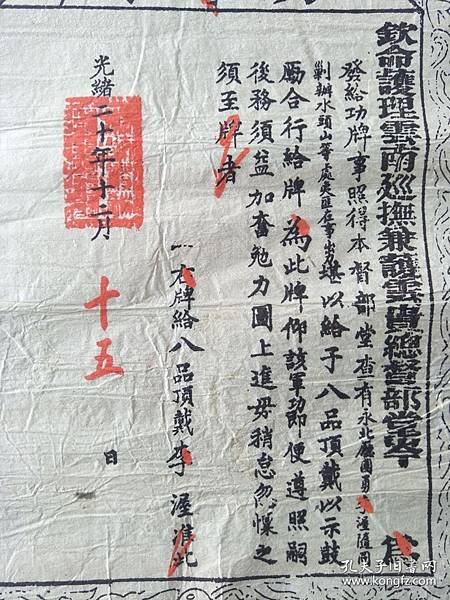 欽命護理雲南巡撫兼護雲貴總督部堂
為
發給功牌事照得本督部堂查有永北廳團勇李渥隨同
剿辦水頭山等處夷匪在事出力堪以給予八品頂戴以示鼓
勵合行給牌為此牌仰該軍功即便遵照嗣
後務須益加奮勉力圖上進毋稍怠忽懍之
須至牌者
一右牌給八品頂戴李渥準此
光緒二十年十二月十五日
孔夫子旧书网
www.kongfz.com